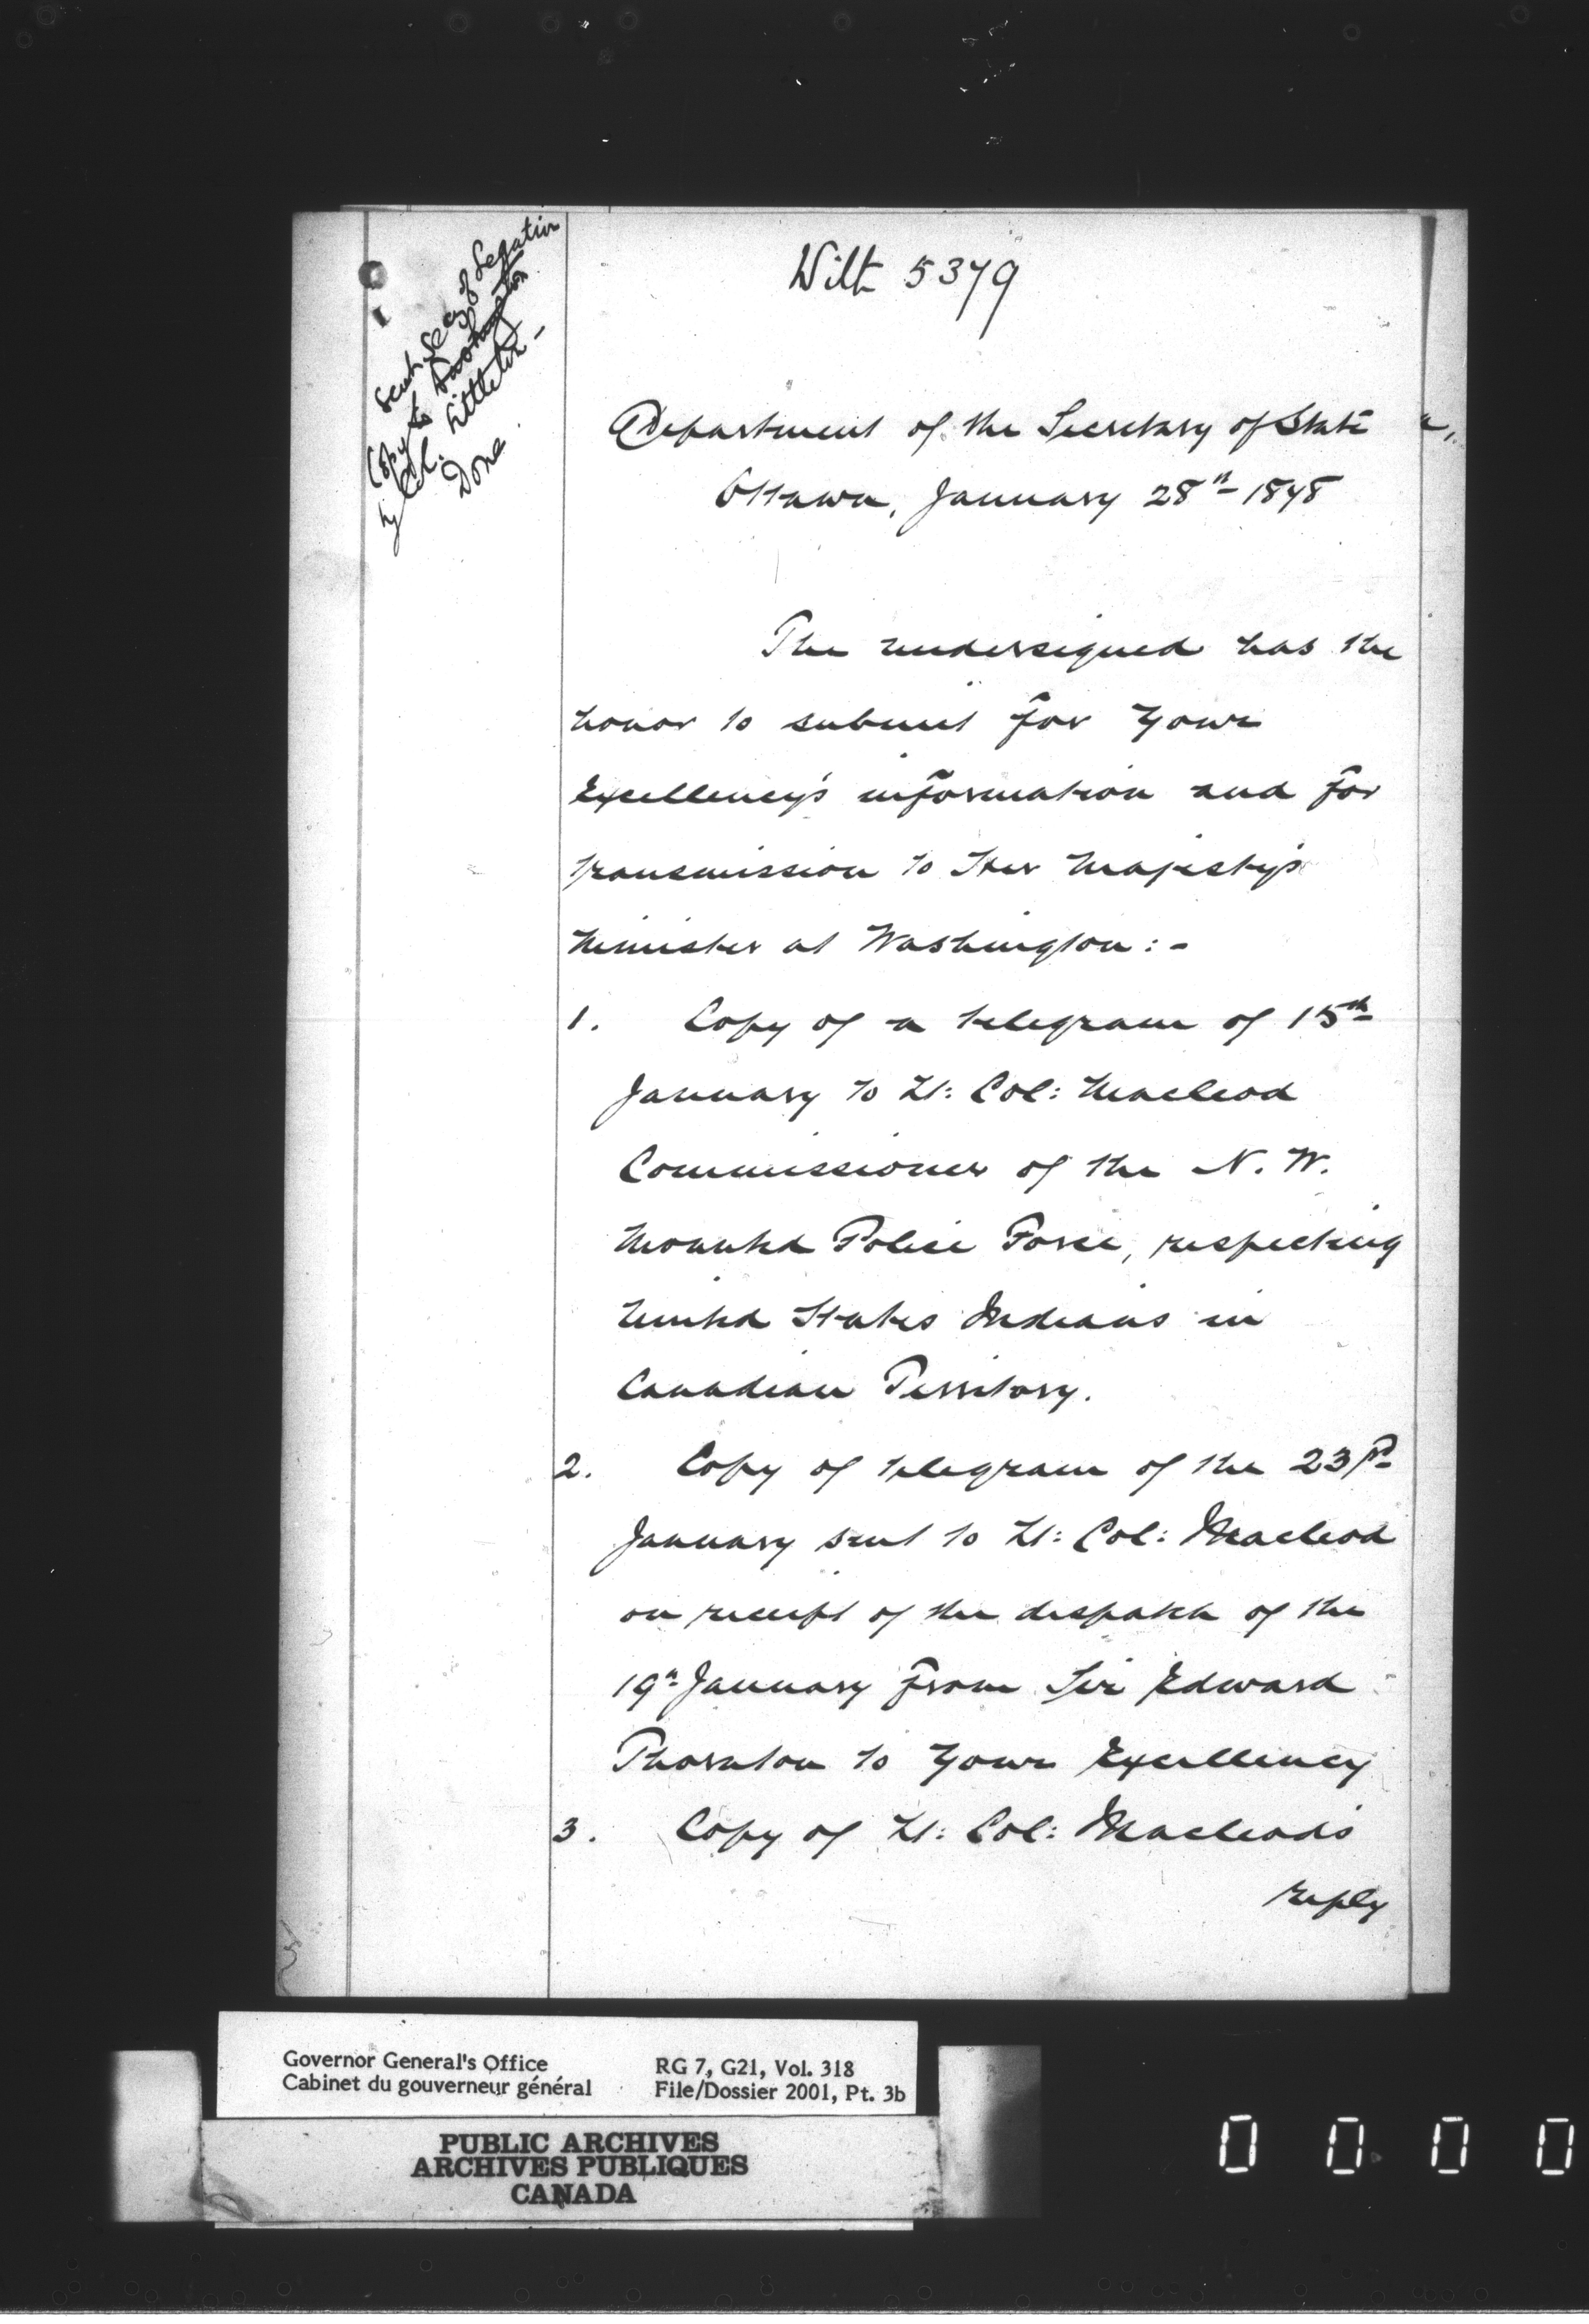 Copy sent Secy of Legation
to Washington
by Col. Littleton -
Done.
Wilt 5379
Department of the Secretary of State
Ottawa, January 28th 1878
The undersigned has the
honor to submit for Your
Excellency's information and for
transmission to Her Majesty's
Minister at Washington:-
1. Copy of a telegram of 15th
January to Lt: Col: Macleod
Commissioner of the N. W.
Mounted Police Force, respecting
United States Indians in
Canadian Territory.
2. Copy of telegram of the 23rd
January sent to Lt: Col: Macleod
on receipt of the despatch of the
19th January from Sir Edward
Thornton to Your Excellency
3. Copy of Lt: Col: Macleod's
reply
Governor General's Office
Cabinet du gouverneur général
RG 7, G21, Vol. 318
File/Dossier 2001, Pt. 3b
PUBLIC ARCHIVES
ARCHIVES PUBLIQUES
CANADA
0 0 0 0